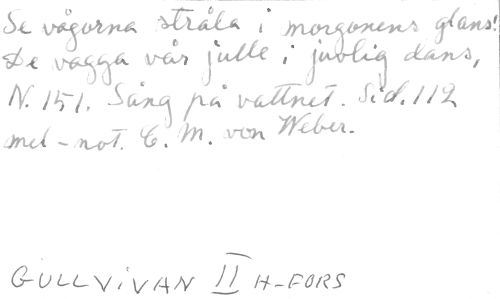 Se vågorna stråla i morgonens glans!
De vagga vår julle i juvlig dans,
N. 151. Sång på vattnet. Sid. 112
mel-not. C. M. von Weber.
GULLVIVAN II H-FORS